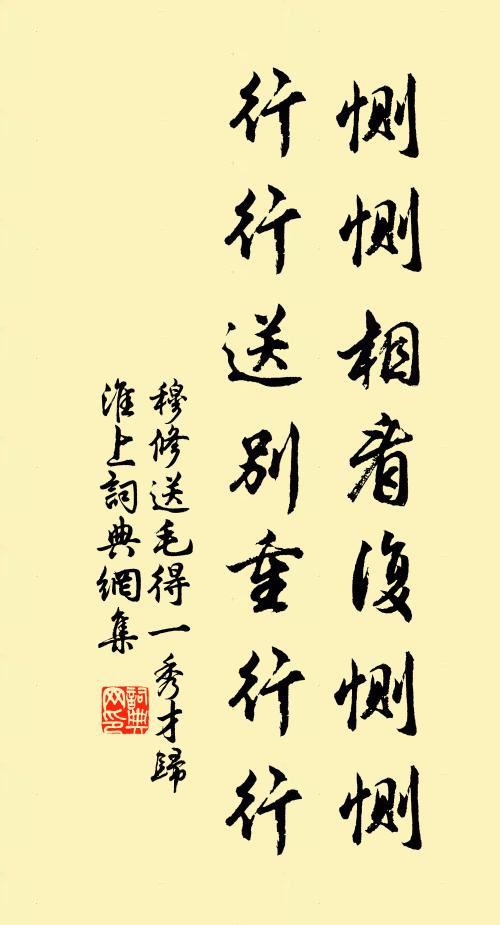 惻惻相看復惻惻
行行送別重行行
穆修送毛得一秀才歸
淮上詞典網集
詞典网印